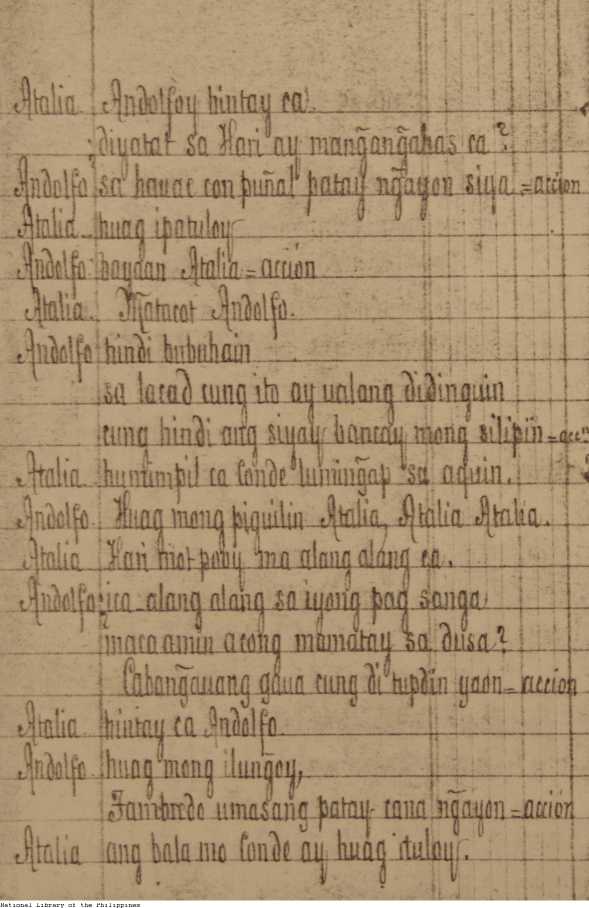 Atalia Andolfoy hintay ca.
diyatat sa Hari ay mang̃ang̃ahas ca?
Andolfo sa hauac con puñal patay ng̃ayon siya = accion
Atalia huag ipatuloy
Andolfo bayaan Atalia = accion
Atalia. Matacot Andolfo.
Andolfo hindi bubuhain
sa lacad cung ito ay ualang didinguin
cung hindi ang siyay bancay mong silipin = accn
Atalia huntimpil ca Conde luming̃ap sa aquin.
Andolfo. Huag mong piguilin Atalia, Atalia Atalia.
Atalia Hari ma alang alang ca.
Andolfo: ica alang alang sa iyong pag sanga
maca amin acong mamatay sa dusa?
Cabang̃auang gaua cung di tupdin yaon = accion
Atalia hintay ca Andolfo.
Andolfo huag mong ilung̃oy,
Fambredo umasang patay cana ng̃ayon = acción
Atalia ang bala mo Conde ay huag ituloy.
National Library of the Philippines